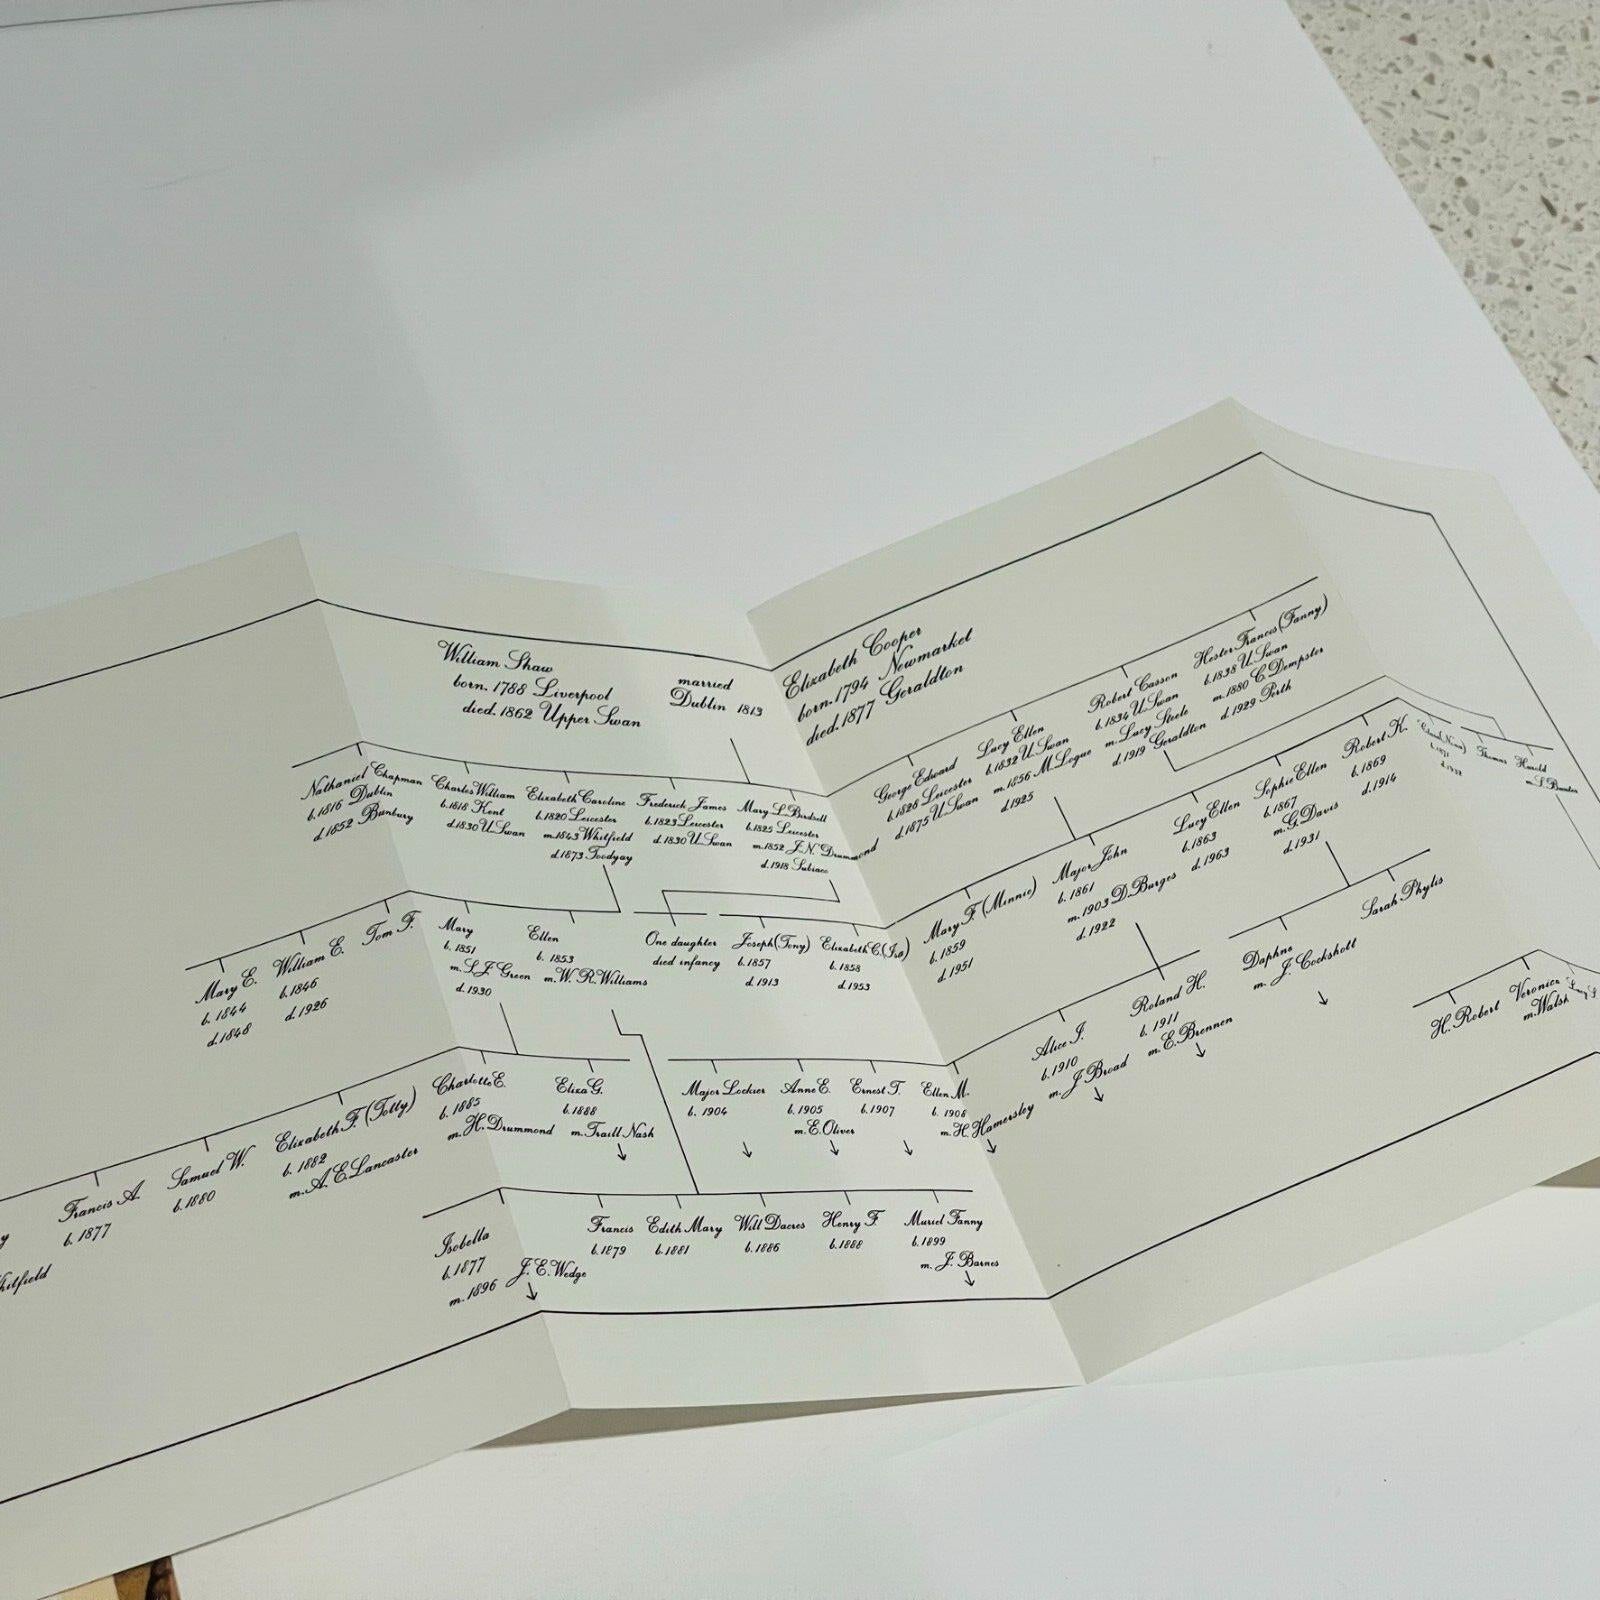 William Shaw
born. 1788 Liverpool
died. 1862 Upper Swan
married
Dublin 1813
Elizabeth Cooper
born. 1794 Newmarket
died. 1877 Geraldton
Nathaniel Chapman
b. 1816 Dublin
d. 1852 Bunbury
Charles William
b. 1818 Kent
d. 1830 U. Swan
Elizabeth Caroline
b. 1820 Leicester
m. 1843 Whitfield
d. 1873 Toodyay
Frederick James
b. 1823 Leicester
d. 1830 U. Swan
Mary L. Birdsell
b. 1825 Leicester
m. 1852 J. N. Drummond
d. 1918 Subiaco
George Edward
b. 1828 Leicester
d. 1875 U. Swan
Lucy Ellen
b. 1832 U. Swan
m. 1856 M. Logue
d. 1925
Robert Casson
b. 1834 U. Swan
m. Lucy Steele
d. 1919 Geraldton
Hester Francis (Fanny)
b. 1838 U. Swan
m. 1880 C. Dempster
d. 1929 Perth
Mary E.
b. 1844
d. 1848
William E.
b. 1846
d. 1926
Tom F.
Mary
b. 1851
m. S. J. Green
d. 1930
Ellen
b. 1853
m. W. R. Williams
One daughter
died infancy
Joseph (Tony)
b. 1857
d. 1913
Elizabeth C. (Isa)
b. 1858
d. 1953
Mary F. (Minnie)
b. 1859
d. 1951
Major John
b. 1861
m. 1903 D. Burges
d. 1922
Lucy Ellen
b. 1863
d. 1963
Sophie Ellen
b. 1867
m. G. Davis
d. 1931
Robert K.
b. 1869
d. 1914
Thomas
Harold
Francis A.
b. 1877
Samuel W.
b. 1880
Elizabeth F. (Totty)
b. 1882
m. A. E. Lancaster
Charlotte E.
b. 1885
m. H. Drummond
Eliza G.
b. 1888
m. Traill Nash
Major Lockier
b. 1904
Anne E.
b. 1905
m. E. Oliver
Ernest T.
b. 1907
Ellen M.
b. 1908
m. H. Hamersley
Alice I.
b. 1910
m. J. Broad
Roland H.
b. 1911
m. E. Brennen
Daphne
m. J. Cockshott
Sarah Phylis
H. Robert
Veronica
m. Walsh
Isobella
b. 1877
m. 1896 J. E. Wedge
Francis
b. 1879
Edith Mary
b. 1881
Will Dacres
b. 1886
Henry F.
b. 1888
Muriel Fanny
b. 1899
m. J. Barnes